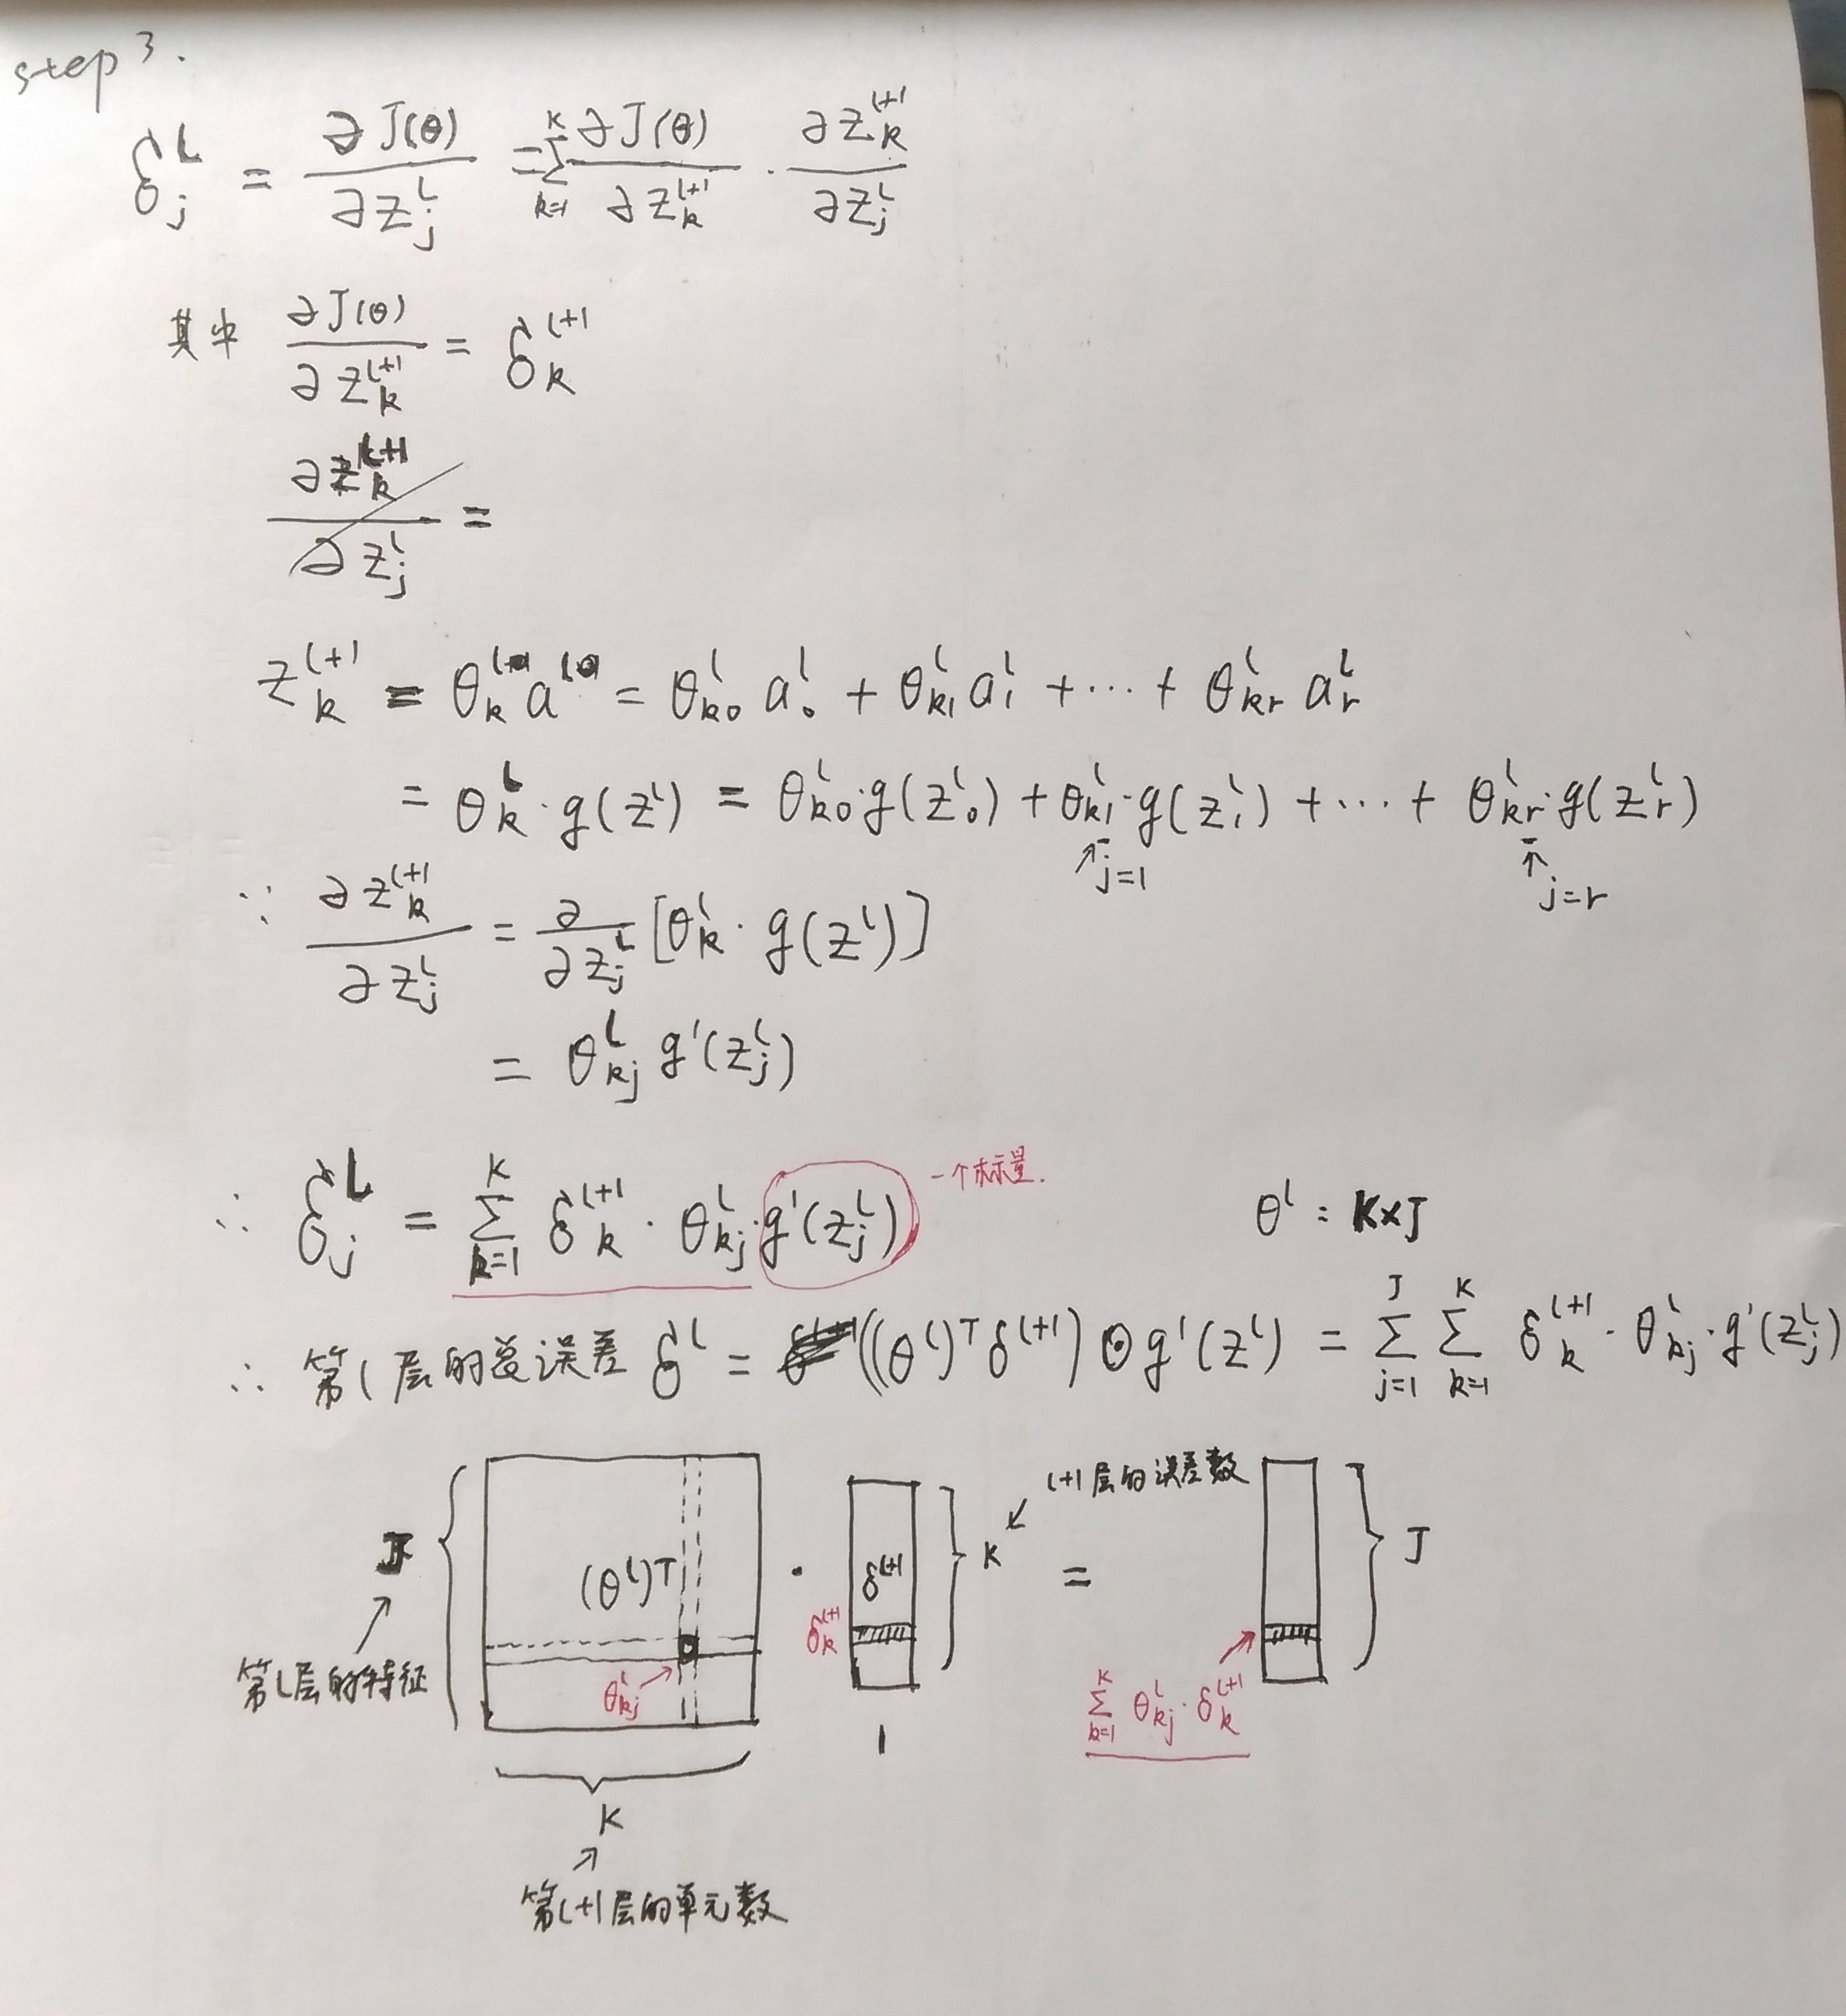 step 3.
δ_j^l = ∂J(θ)/∂z_j^l = Σ_{k=1}^{K} ∂J(θ)/∂z_k^{l+1} · ∂z_k^{l+1}/∂z_j^l
其中 ∂J(θ)/∂z_k^{l+1} = δ_k^{l+1}
∂z_k^{l+1}/∂z_j^l =
z_k^{l+1} = θ_k^l a^l = θ_{k0}^l a_0^l + θ_{k1}^l a_1^l + ··· + θ_{kr}^l a_r^l
= θ_k^l · g(z^l) = θ_{k0}^l · g(z_0^l) + θ_{k1}^l · g(z_1^l) + ··· + θ_{kr}^l · g(z_r^l)
↑ j=1 ↑ j=r
∵ ∂z_k^{l+1}/∂z_j^l = ∂/∂z_j^l [θ_k^l · g(z^l)]
= θ_{kj}^l g'(z_j^l)
∴ δ_j^l = Σ_{k=1}^{K} δ_k^{l+1} · θ_{kj}^l · g'(z_j^l) 一个标量. θ^l : K×J
∴ 第l层的总误差 δ^l = ((θ^l)^T δ^{l+1}) ⊙ g'(z^l) = Σ_{j=1}^{J} Σ_{k=1}^{K} δ_k^{l+1} · θ_{kj}^l · g'(z_j^l)
l+1层的误差数
J (θ^l)^T · δ^{l+1} K = J
第l层的特征 θ_{kj}^l δ_k^{l+1} Σ_{k=1}^{K} θ_{kj}^l · δ_k^{l+1}
1
K
第l+1层的单元数